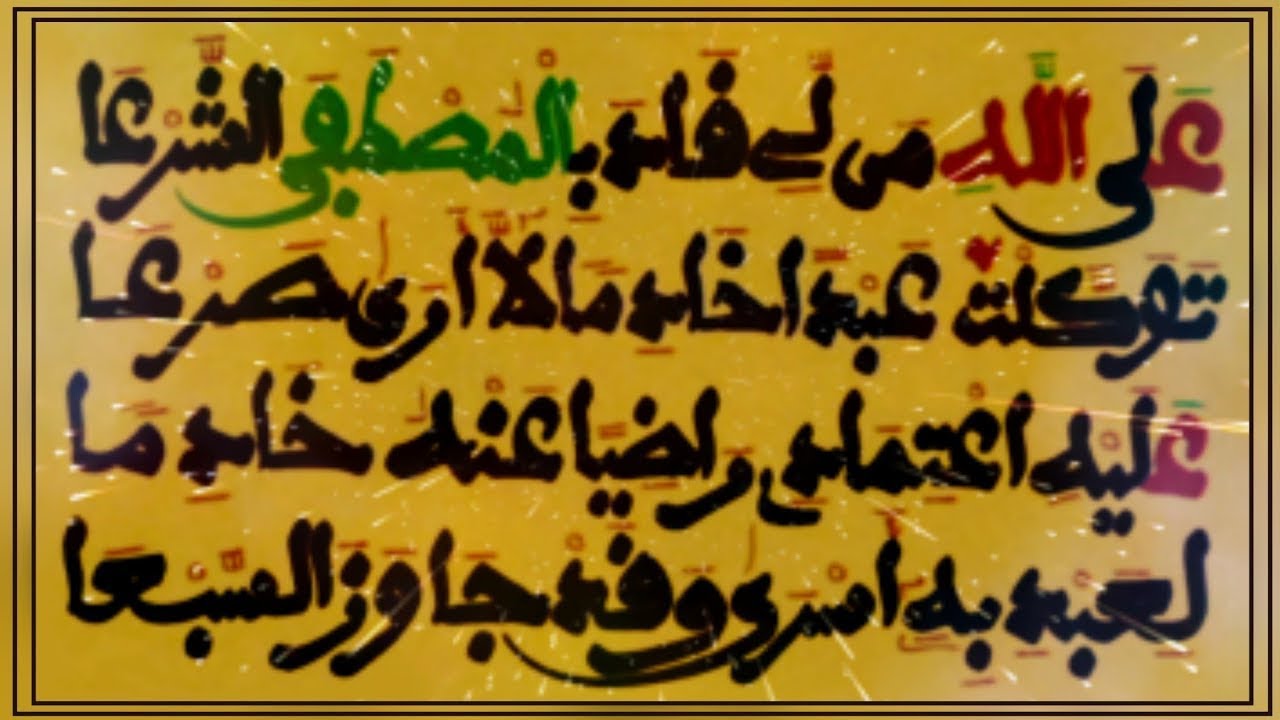 عَلَى اللَّهِ مَن لِّي قَادَ بِالْمُصْطَفَى الشَّرْعَا
تَوَكَّلْتُ عَبْدًا خَادِمًا لَّا أَرَى صَرْعَا
عَلَيْهِ اعْتِمَادِي رَاضِيًا عَنْهُ خَادِمًا
لِعَبْدٍ بِهِ أَسْرَى وَقَدْ جَاوَزَ السَّبْعَا